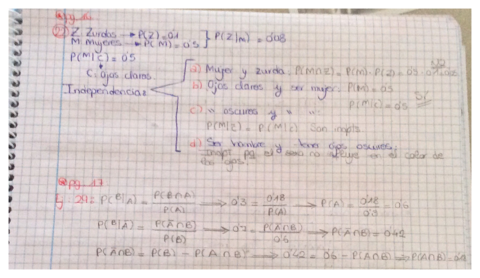 Z: Zurdos → P(Z)=0'1
M: Mujeres → P(M)=0'5 } P(Z|M)=0'08
P(M|C)=0'5
C: Ojos claros
Independencia:
a) Mujer y zurda: P(M∩Z)=P(M)·P(Z)=0'5·
b) Ojos claros y ser mujer: P(M)=0'5
P(M|C)=0'5 SI
c) " oscuros y " "
P(M|C̄)=P(M|C) Son
d) Ser hombre y tener ojos oscuros:
el sexo no influye en el color de
los ojos
P(B|A)=P(B∩A)/P(A) → 0'3=0'18/P(A) → P(A)=0'18/0'3=0'6
P(B|Ā)=P(Ā∩B)/P(B) → 0'7=P(Ā∩B)/0'6 → P(Ā∩B)=0'42
P(Ā∩B)=P(B)-P(A∩B) → 0'42=0'6-P(A∩B) ⇒ P(A∩B)=